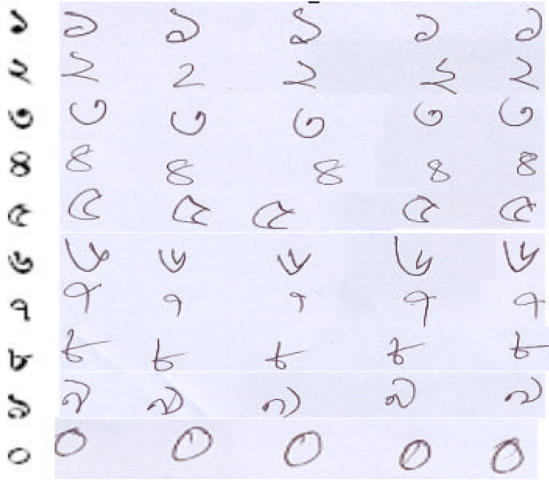 ১ ১ ১ ১ ১ ১
২ ২ ২ ২ ২ ২
৩ ৩ ৩ ৩ ৩ ৩
৪ ৪ ৪ ৪ ৪ ৪
৫ ৫ ৫ ৫ ৫ ৫
৬ ৬ ৬ ৬ ৬ ৬
৭ ৭ ৭ ৭ ৭ ৭
৮ ৮ ৮ ৮ ৮ ৮
৯ ৯ ৯ ৯ ৯ ৯
০ ০ ০ ০ ০ ০